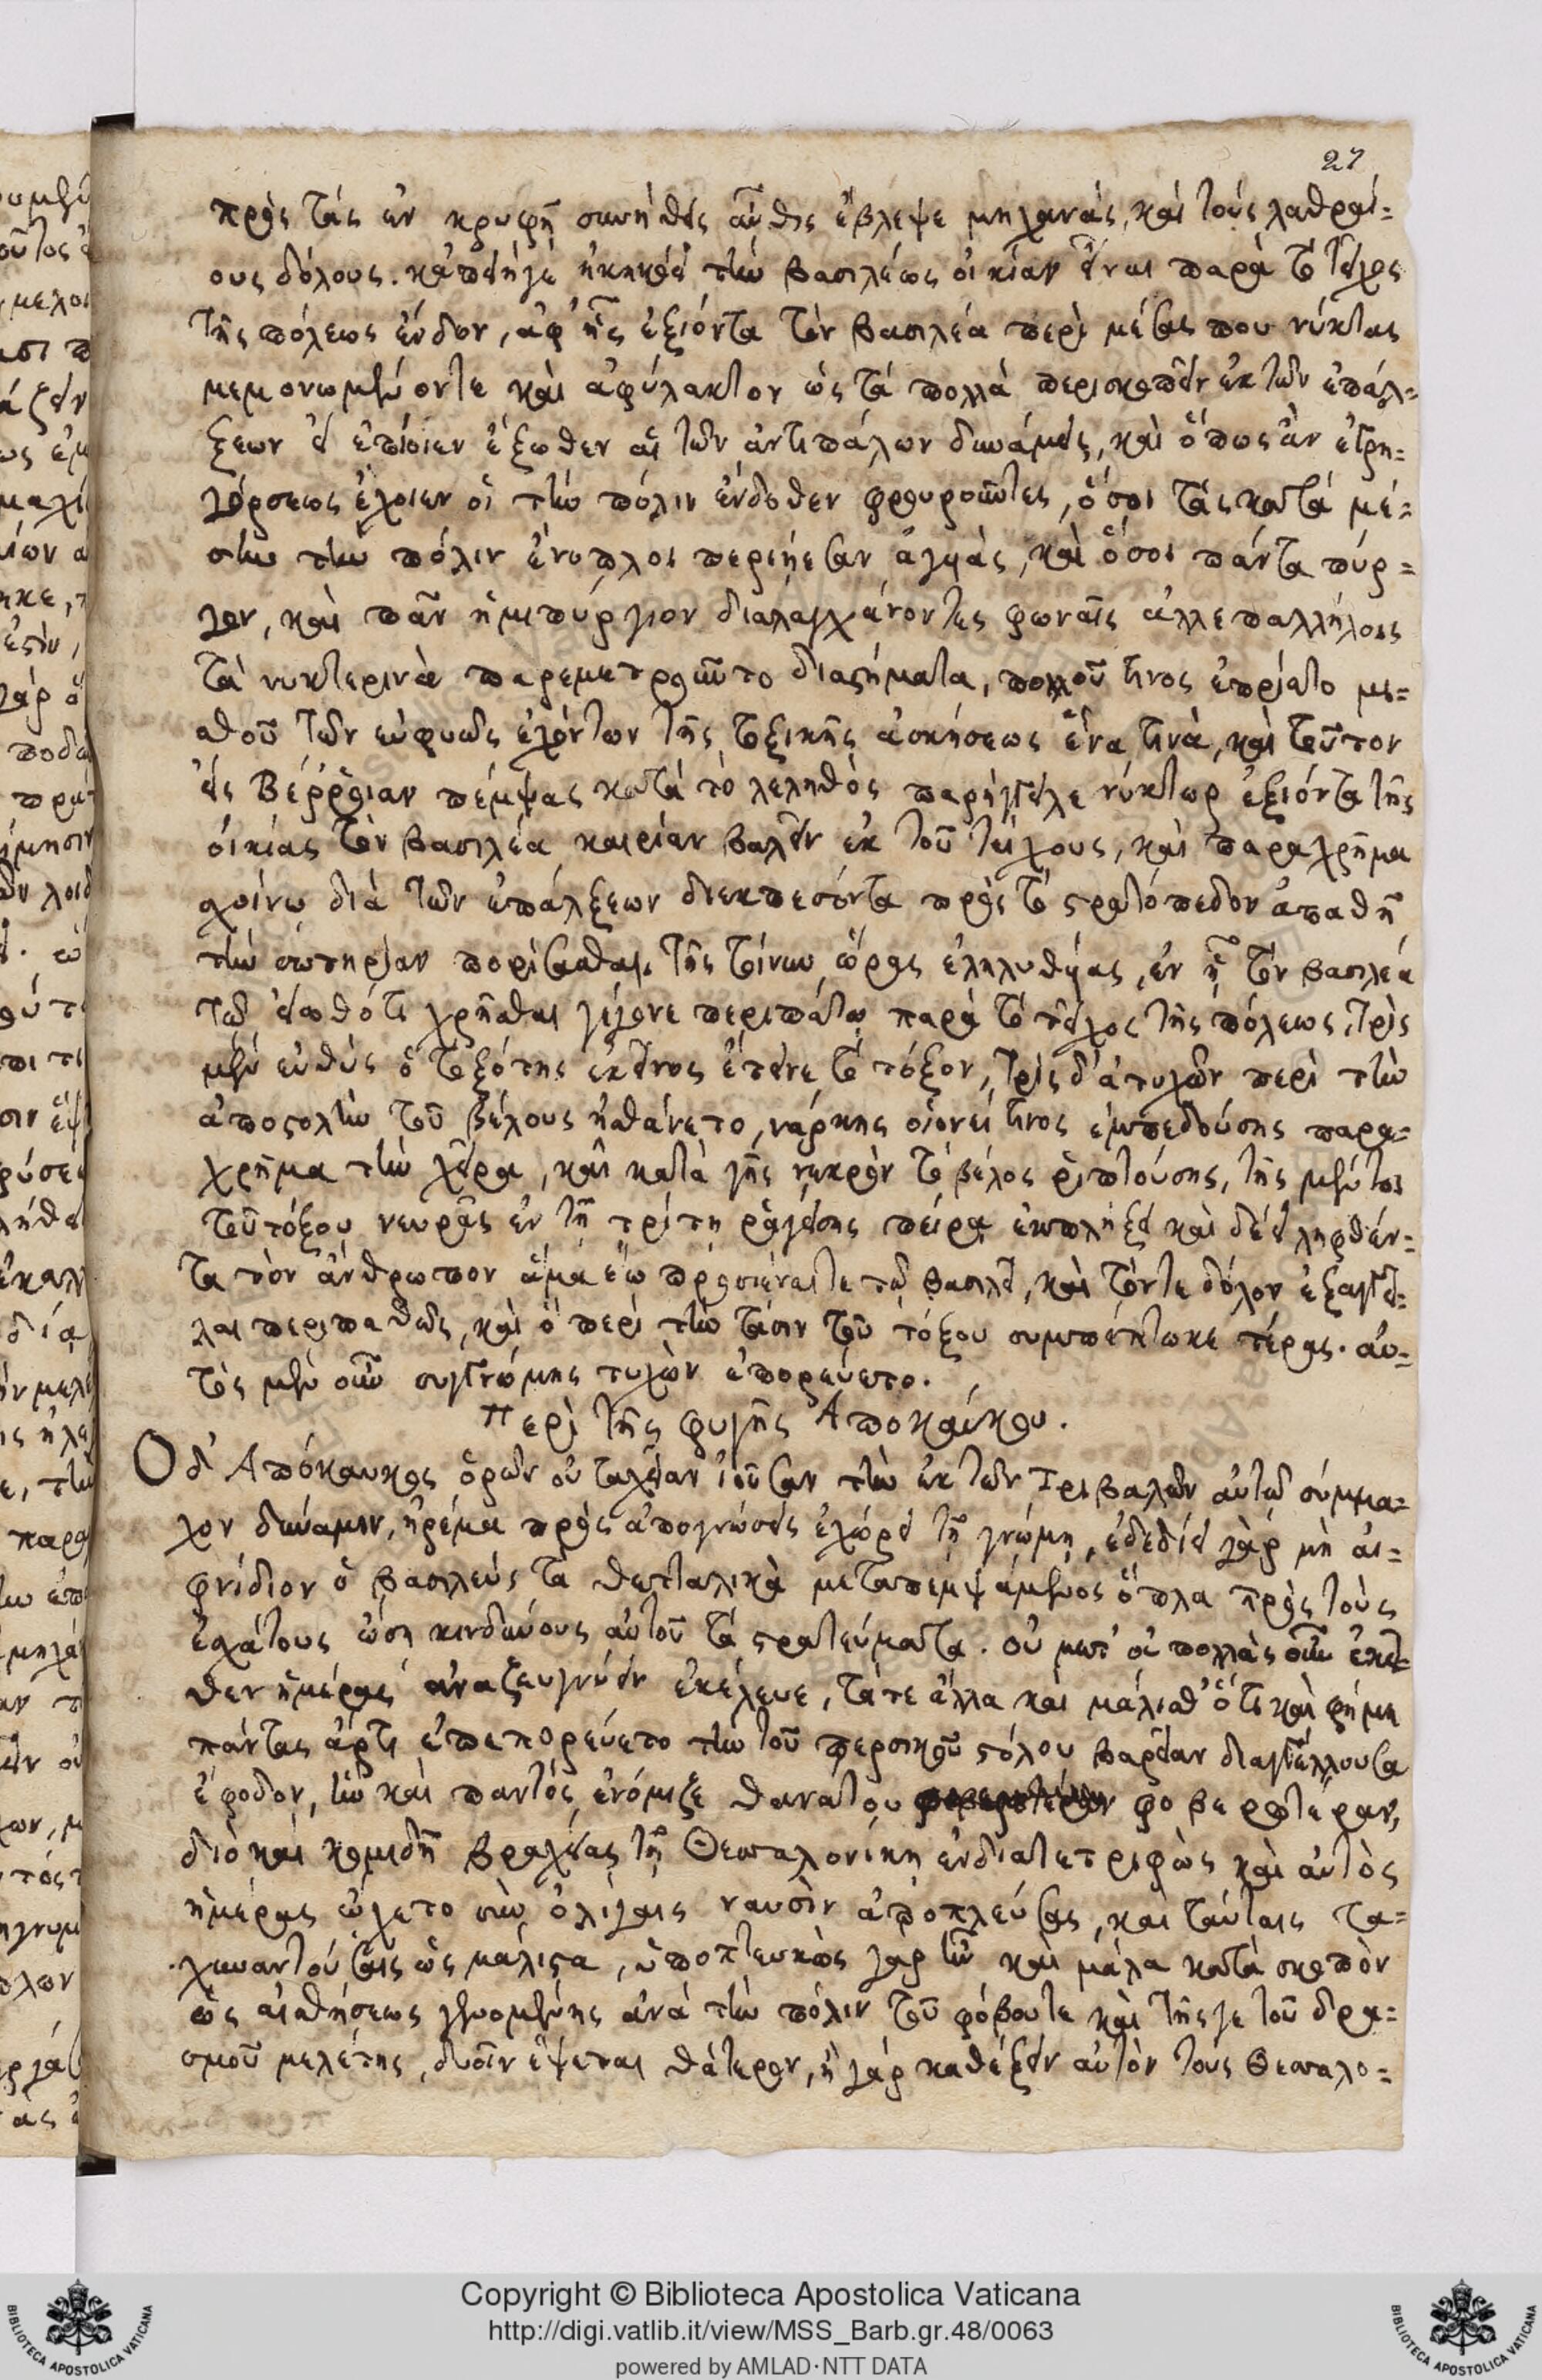 27
πρὸς τὰς ἐν κρυφῇ συνήθεις αὖθις ἔβλεψε μηχανάς, καὶ τοὺς λαθραί=
ους δόλους. κἀπειδήγε ἠκηκόει τὴν βασιλέως οἰκίαν εἶναι παρὰ τὸ τεῖχος
τῆς πόλεως ἔνδον, ἀφ' ἧς ἐξιόντα τὸν βασιλέα περὶ μέσας που νύκτας
μεμονωμένον τε καὶ ἀφύλακτον ὡς τὰ πολλὰ περισκοπεῖν ἐκ τῶν ἐπάλ=
ξεων εἰ ἐπίοιεν ἔξωθεν αἱ τῶν ἀντιπάλων δυνάμεις, καὶ ὅπως ἂν ἐγρη=
γόρσεως ἔχοιεν οἱ τὴν πόλιν ἔνδοθεν φρουροῦντες, ὅσοι τὰς κατὰ μέ=
σην τὴν πόλιν ἔνοπλοι περιῄεσαν ἀγυιάς, καὶ ὅσοι πάντα πύρ=
γον, καὶ πᾶν ἡμιπύργιον διαλαγχάνοντες φωναῖς ἀλλεπαλλήλοις
τὰ νυκτερινὰ παρεμετροῦντο διαστήματα, πολλοῦ τινος ἐπρίατο μι=
σθοῦ τῶν εὐφυῶς ἐχόντων τῆς τοξικῆς ἀσκήσεως ἕνα τινὰ, καὶ τοῦτον
εἰς Βέρροιαν πέμψας κατὰ τὸ λεληθὸς παρήγγειλε νύκτωρ ἐξιόντα τῆς
οἰκίας τὸν βασιλέα καιρίαν βαλεῖν ἐκ τοῦ τείχους, καὶ παραχρῆμα
σχοίνῳ διὰ τῶν ἐπάλξεων διεκπεσόντα πρὸς τὸ στρατόπεδον ἀπαθῆ
τὴν σωτηρίαν πορίσασθαι. τῆς τοίνυν ὥρας ἐληλυθυίας, ἐν ᾗ τὸν βασιλέα
τῷ εἰωθότι χρῆσθαι γέγονε περιπάτῳ παρὰ τὸ τεῖχος τῆς πόλεως, τρὶς
μὲν εὐθὺς ὁ τοξότης ἐκεῖνος ἔτεινε τὸ τόξον, τρὶς δ' ἀτυχῶν περὶ τὴν
ἀποστολὴν τοῦ βέλους ᾐσθάνετο, νάρκης οἱονεί τινος ἐμπεδούσης παρα=
χρῆμα τὴν χεῖρα, καὶ κατὰ γῆς νεκρὸν τὸ βέλος ῥιπτούσης, τῆς μέντοι
τοῦ τόξου νευρᾶς ἐν τῇ τρίτῃ ῥαγείσης πείρᾳ ἐκπλήξει καὶ δέει ληφθέν=
τα τὸν ἄνθρωπον ἅμα ἕῳ προσιέναι τε τῷ βασιλεῖ, καὶ τόν τε δόλον ἐξαγγεῖ=
λαι περιπαθῶς, καὶ ὃ περὶ τὴν τάσιν τοῦ τόξου συμπέπτωκε τέρας. αὐ=
τὸς μὲν οὖν συγγνώμης τυχὼν ἐπορεύετο.
Περὶ τῆς φυγῆς Ἀποκαύκου.
Ὁ δ' Ἀπόκαυκος ὁρῶν οὐ ταχεῖαν ἰοῦσαν τὴν ἐκ τῶν Τριβαλῶν αὐτῷ σύμμα=
χον δύναμιν, ἠρέμα πρὸς ἀπογνώσεις ἐχώρει τῇ γνώμῃ, ἐδεδίει γὰρ μὴ αἰ=
φνίδιον ὁ βασιλεὺς τὰ θετταλικὰ μεταπεμψάμενος ὅπλα πρὸς τοὺς
ἐσχάτους ὤσῃ κινδύνους αὐτοῦ τὰ στρατεύματα. οὐ μετ' οὐ πολλὰς οὖν ἐκεῖ=
θεν ἡμέρας ἀναζευγνύειν ἐκέλευε, τά τε ἄλλα καὶ μάλισθ' ὅτι καὶ φήμη
πάντας ἄρτι ἐπεπορεύετο τὴν τοῦ περσικοῦ στόλου βαρεῖαν διαγγέλλουσα
ἔφοδον, ἣν καὶ παντὸς ἐνόμιζε θανάτου φοβερωτέραν,
διὸ καὶ κομιδῇ βραχείας τῇ Θεσσαλονίκῃ ἐνδιατετριφὼς καὶ αὐτὸς
ἡμέρας ᾤχετο σὺν ὀλίγαις ναυσὶν ἀποπλεύσας, καὶ ταύταις τα=
χυναυτούσαις ὡς μάλιστα, ὑποπτευκὼς γὰρ ἦν καὶ μάλα κατὰ σκοπὸν
ὡς αἰσθήσεως γενομένης ἀνὰ τὴν πόλιν τοῦ φόβου τε καὶ τῆς γε τοῦ δρα=
σμοῦ μελέτης, δυοῖν ἕψεται θάτερον, ἢ γὰρ καθέξειν αὐτὸν τοὺς Θεσσαλο=
Copyright © Biblioteca Apostolica Vaticana
http://digi.vatlib.it/view/MSS_Barb.gr.48/0063
powered by AMLAD·NTT DATA
BIBLIOTECA APOSTOLICA VATICANA
BIBLIOTECA APOSTOLICA VATICANA